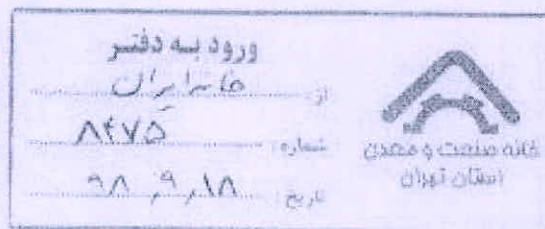 ورود به دفتر
از: خانه ایران
شماره: ۸۴۷۵
تاریخ: ۹۸,۹,۱۸
خانه صنعت و معدن
استان تهران